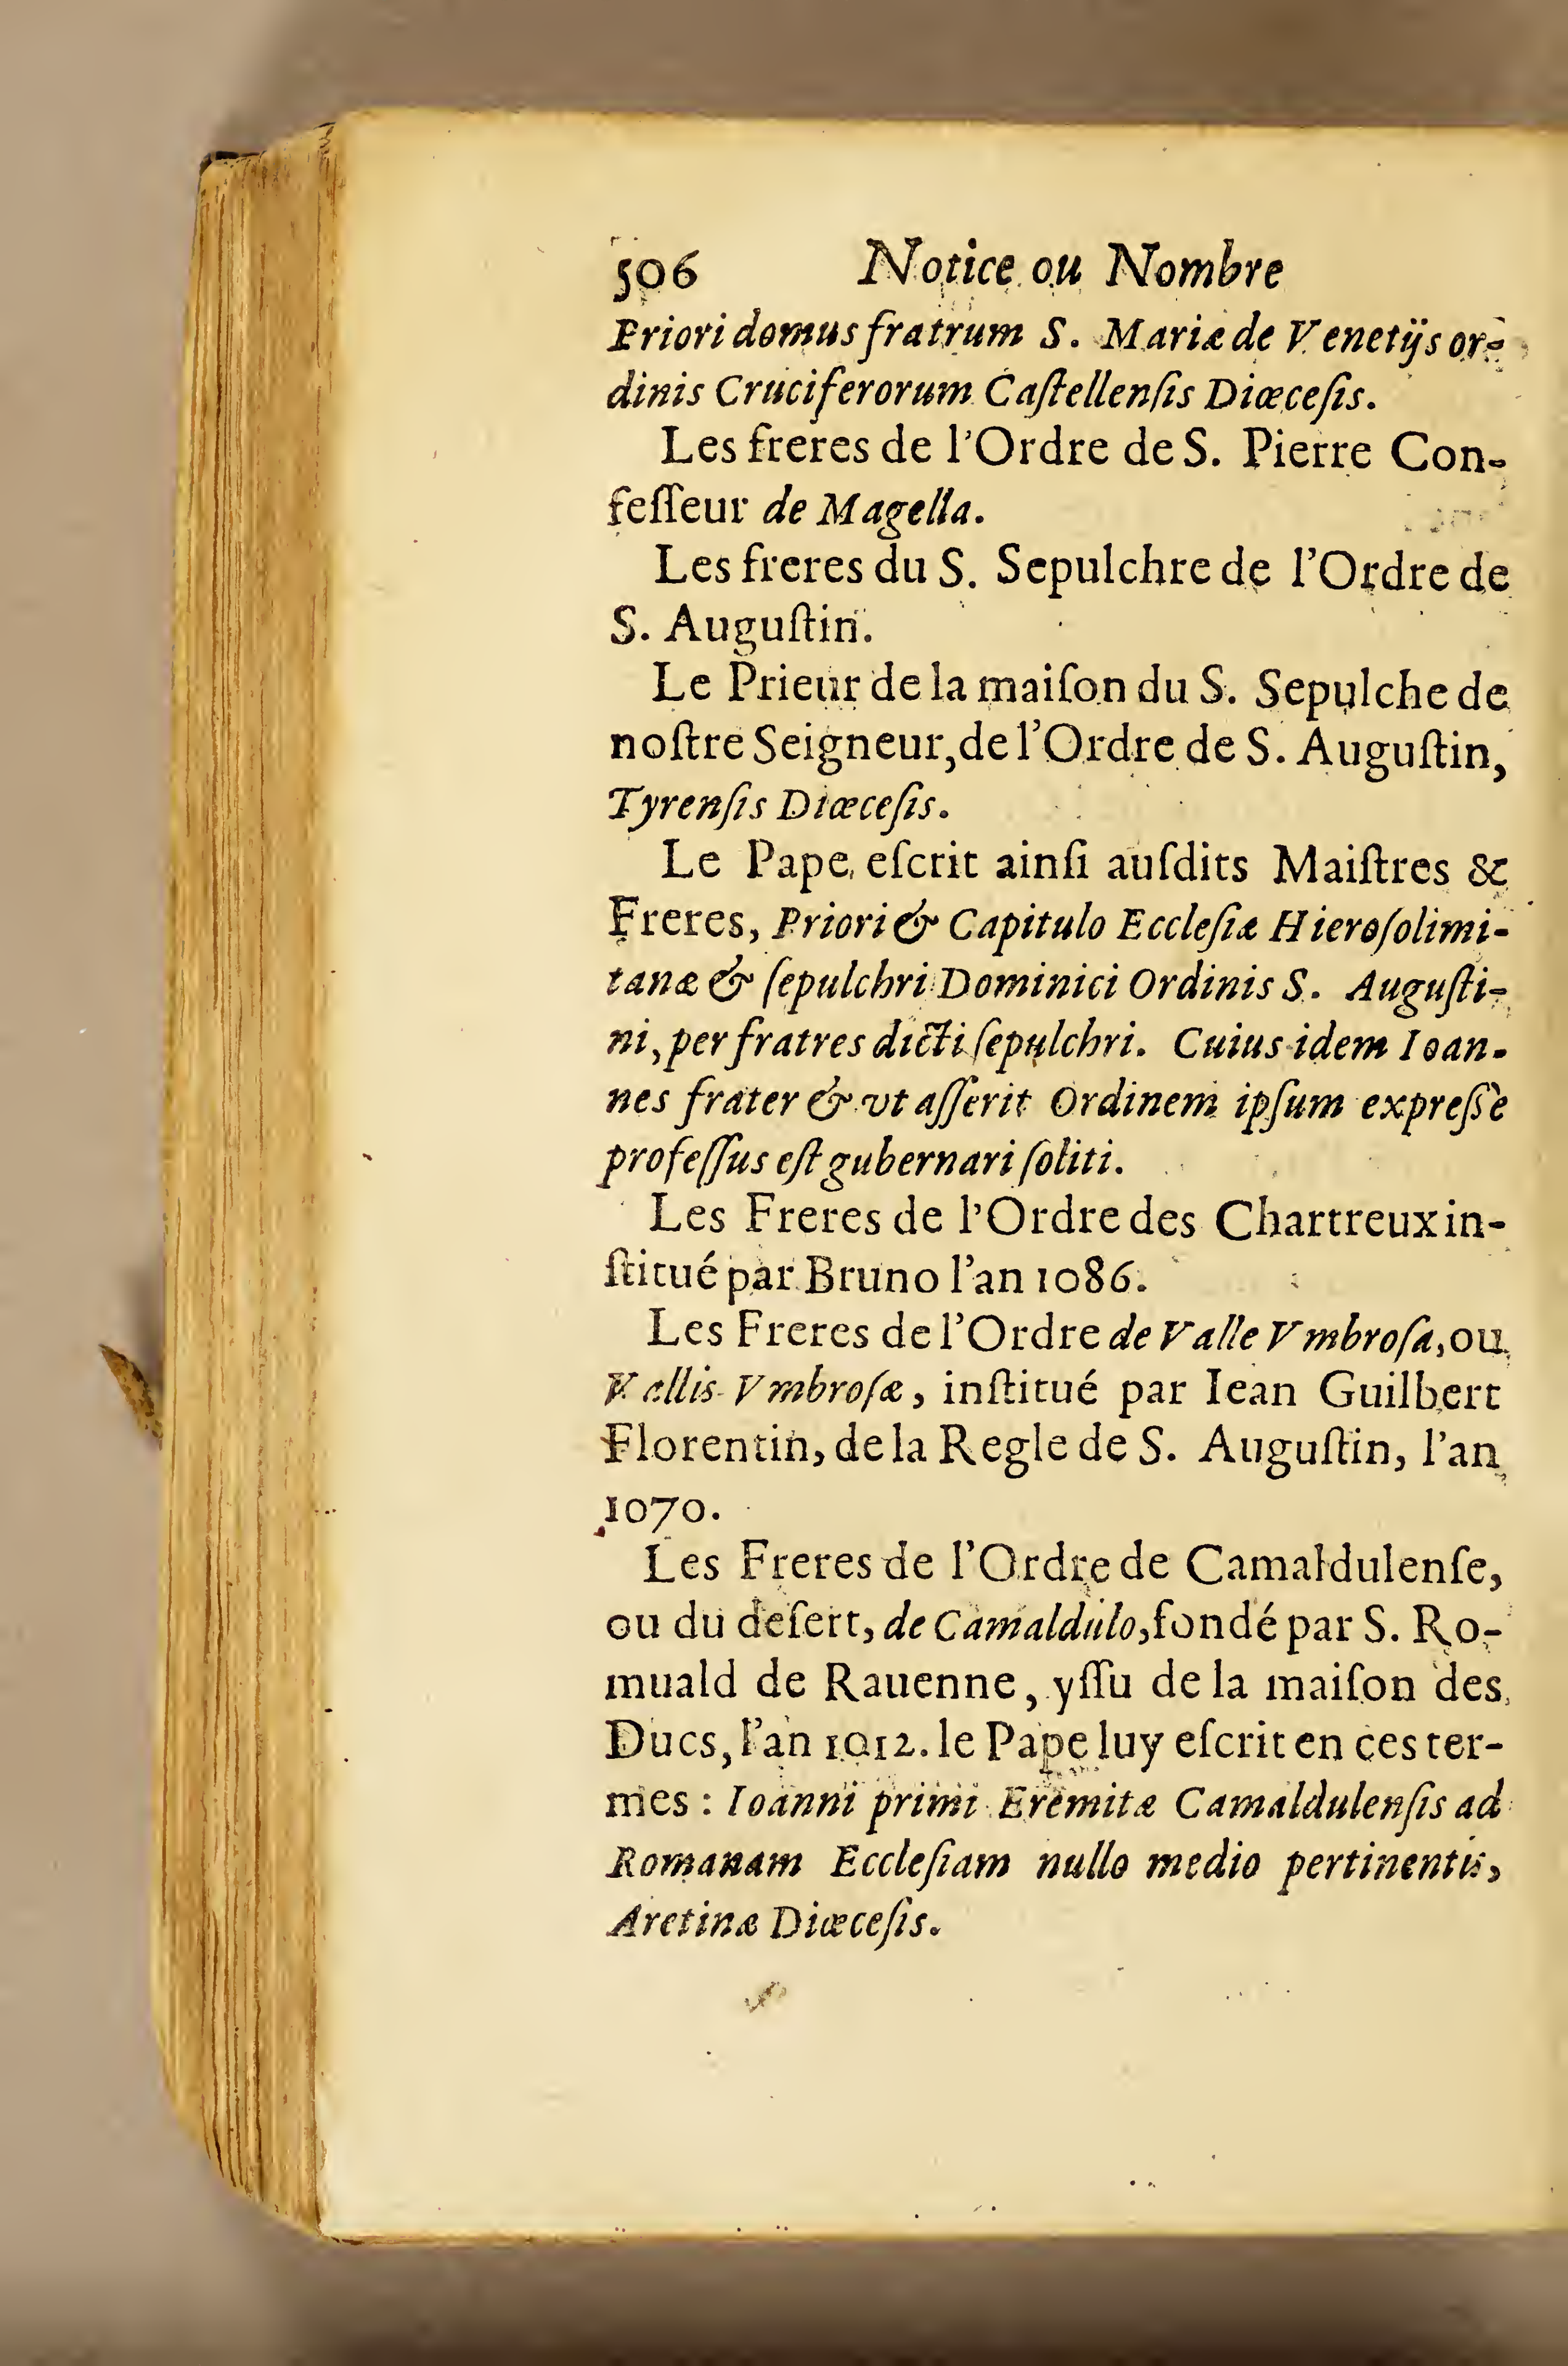 506 Notice ou Nombre
Priori domus fratrum S. Mariæ de Venetijs or-
dinis Cruciferorum Caſtellenſis Diœceſis.
Les freres de l'Ordre de S. Pierre Con-
feſſeur de Magella.
Les freres du S. Sepulchre de l'Ordre de
S. Auguſtin.
Le Prieur de la maiſon du S. Sepulche de
noſtre Seigneur, de l'Ordre de S. Auguſtin,
Tyrenſis Diœceſis.
Le Pape eſcrit ainſi auſdits Maiſtres &
Freres, Priori & Capitulo Eccleſiæ Hieroſolimi-
tanæ & ſepulchri Dominici Ordinis S. Auguſti-
ni, per fratres dicti ſepulchri. Cuius idem Ioan-
nes frater & vt aſſerit Ordinem ipſum expreſsè
profeſſus eſt gubernari ſoliti.
Les Freres de l'Ordre des Chartreux in-
ſtitué par Bruno l'an 1086.
Les Freres de l'Ordre de Valle Vmbroſa, ou
Vallis Vmbroſæ, inſtitué par Iean Guilbert
Florentin, de la Regle de S. Auguſtin, l'an
1070.
Les Freres de l'Ordre de Camaldulenſe,
ou du deſert, de Camaldulo, fondé par S. Ro-
muald de Rauenne, yſſu de la maiſon des
Ducs, l'an 1012. le Pape luy eſcrit en ces ter-
mes : Ioanni primi Eremitæ Camaldulenſis ad
Romanam Eccleſiam nullo medio pertinentis,
Aretinæ Diœceſis.